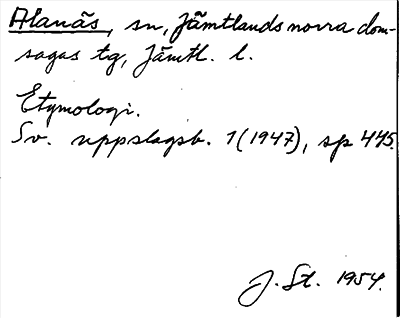 Alanäs, sn, Jämtlands norra dom-
sagas tg, Jämtl. l.
Etymologi.
Sv. uppslagsb. 1 (1947), sp 445.
J. St. 1954.